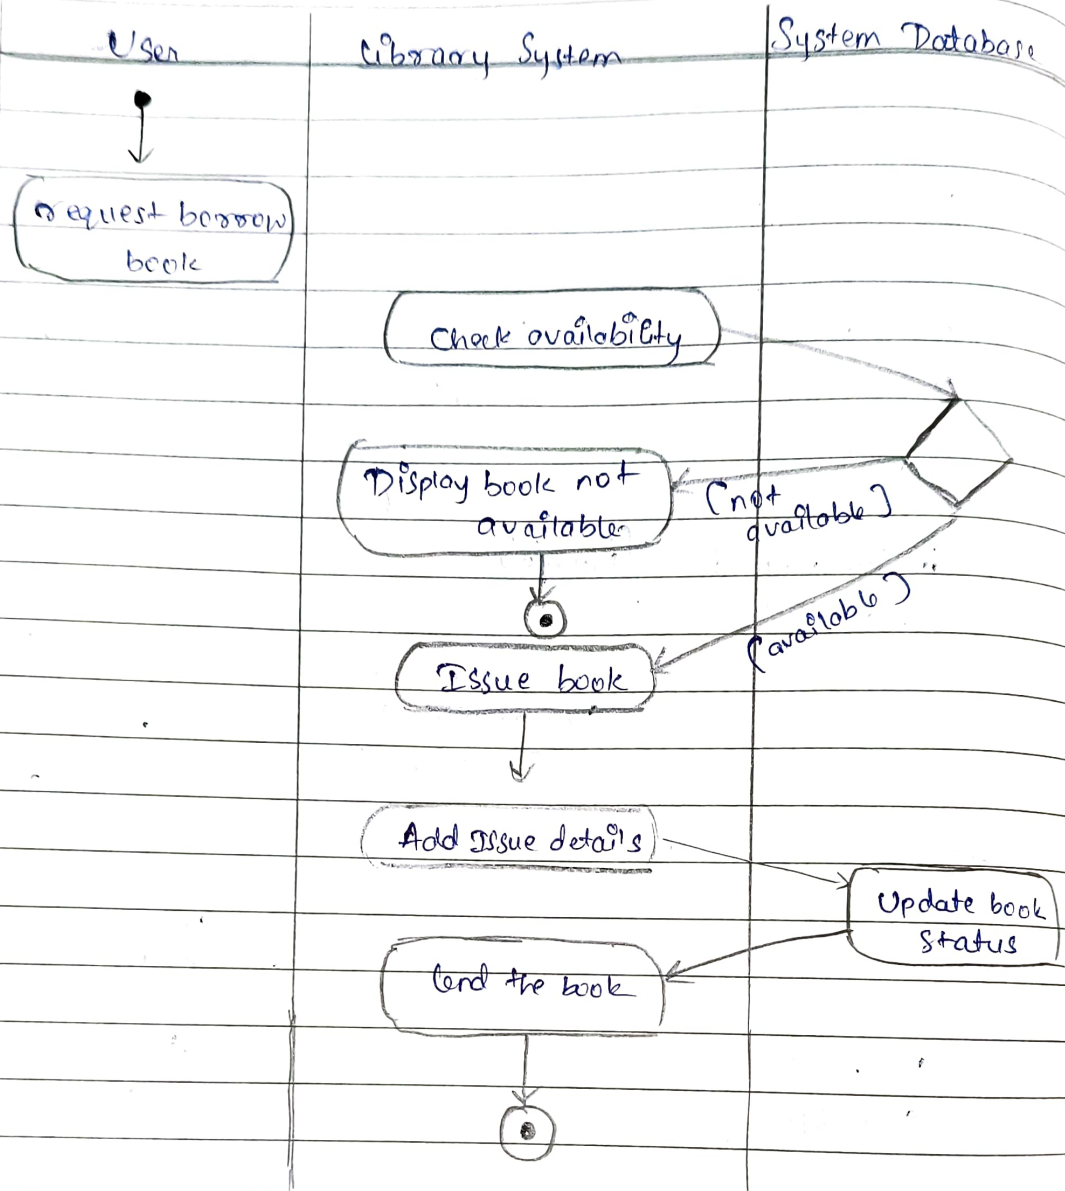 User
Library System
System Database
request borrow
book
Check availability
Display book not
available
[not
available]
[available]
Issue book
Add Issue details
Update book
status
lend the book